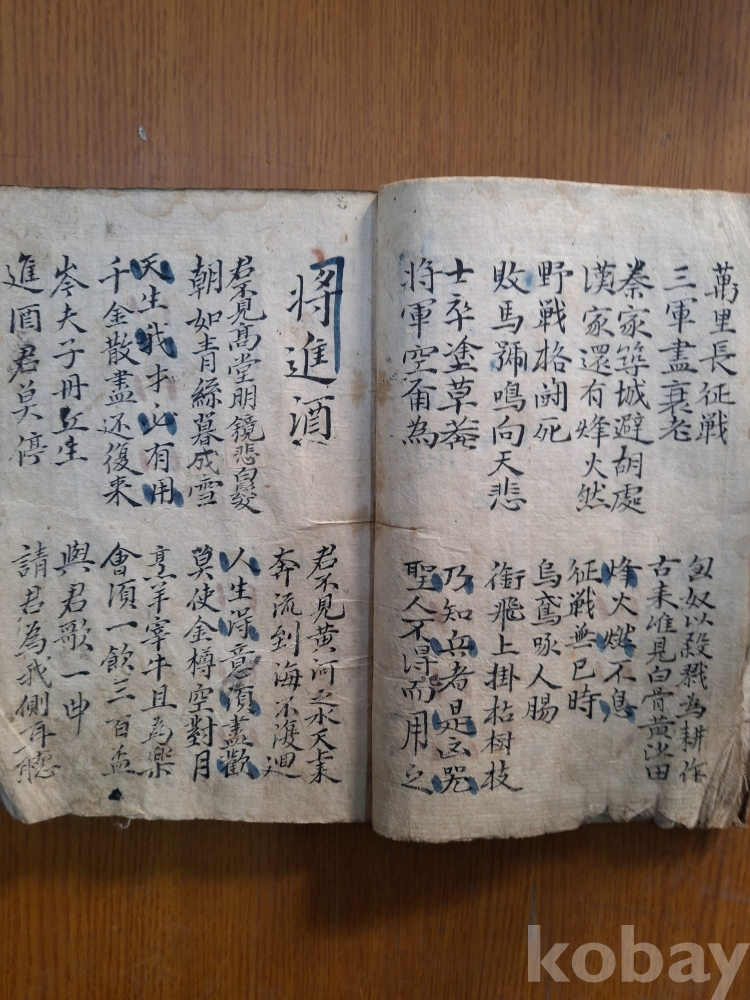 萬里長征戰
三軍盡衰老
匈奴以殺戮為耕作
古来唯見白骨黃沙田
秦家築城避胡處
漢家還有烽火然
烽火燃不息
征戰無已時
野戰格鬪死
敗馬號鳴向天悲
烏鳶啄人腸
銜飛上掛枯樹枝
士卒塗草莽
將軍空甭為
乃知兵者是凶器
聖人不得而用之
將進酒
君不見黃河之水天上来
奔流到海不復迴
君不見高堂明鏡悲白髮
朝如青絲暮成雪
人生得意須盡歡
莫使金樽空對月
天生我才必有用
千金散盡还復来
烹羊宰牛且為樂
會須一飲三百盃
岑夫子丹丘生
進酒君莫停
與君歌一曲
請君為我側耳聽
kobay